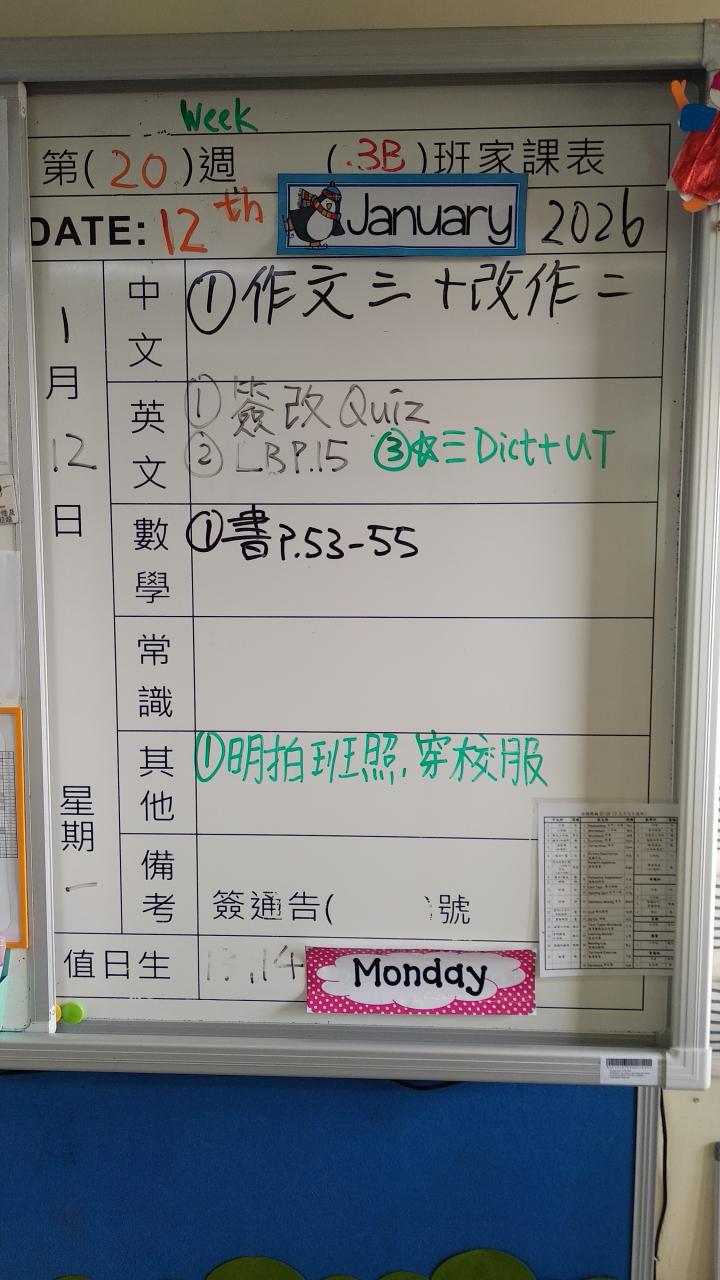 Week
第(20)週 (3B)班家課表
DATE: 12th January 2026
1月12日
星期一
中文
①作文三+改作二
英文
①簽改Quiz
②LBP.15 ③☆三Dict+UT
數學
①書P.53-55
常識
其他
①明拍班照,穿校服
備考
簽通告( )號
值日生
13,14
Monday